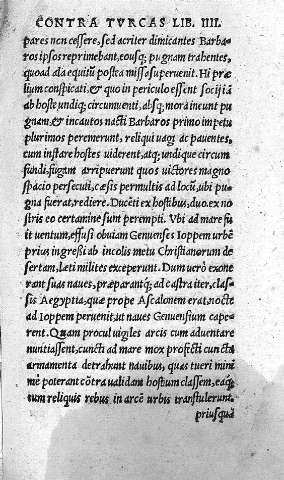 CONTRA TVRCAS LIB. IIII.
pares non cessere, sed acriter dimicantes Barba
ros ipsos reprimebant, eousq; pugnam trahentes,
quoad ala equitũ postra missa superuenit. Hi præ
lium conspicati & quo in periculo essent socij iã
ab hoste undiq; circumuenti, absq; mora ineunt pu
gnam, & incautos nacti Barbaros primo impetu
plurimos peremerunt, reliqui uagi ac pauentes,
cum instare hostes uiderent, atq; undique circum
fundi, fugam arripuerunt quos uictores magno
spacio persecuti, cæsis permultis ad locũ, ubi pu
gna fuerat, rediere. Ducẽti ex hostibus, duo ex no
stris eo certamine sunt perempti. Vbi ad mare fu
it uentum, effusi obuiam Genuenses Ioppem urbẽ
prius ingressi ab incolis metu Christianorum de
sertam, Leti milites exceperunt. Dum uerò exone
rant suas naues, præparantq; ad castra iter, clas-
sis Aegyptia, quæ prope Ascalonem erat, nocte
ad Ioppem peruenit, ut naues Genuensium cape
rent. Quam procul uigiles arcis cum aduentare
nuntiassent, cuncti ad mare mox profecti cuncta
armamenta detrahunt nauibus, quas tueri mini
mè poterant cõtra ualidam hostium classem, eaq;
tum reliquis rebus in arcẽ urbis transtulerunt,
priusquã